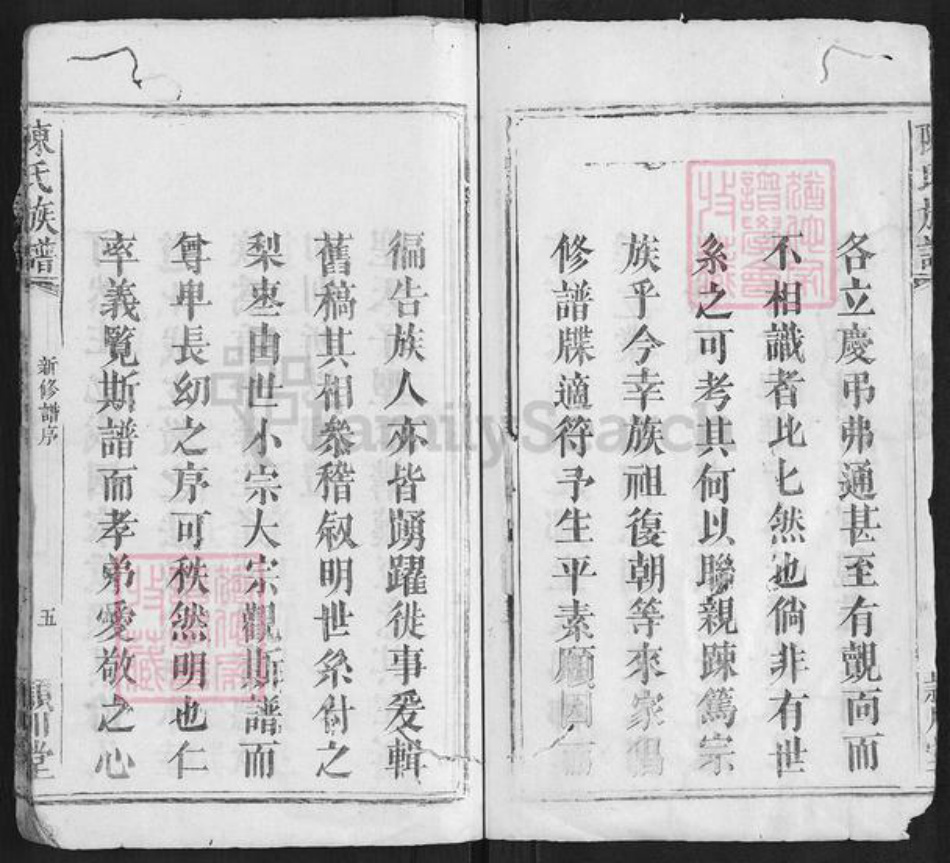 各立慶弔弗通甚至有覿面而
不相識者比匕然也倘非有世
系之可考其何以聯親踈篤宗
族乎今幸族祖復朝等來家
修譜牒適符予生平素願因而
徧告族人亦皆踴躍從事爰輯
舊稿其相叅稽叙明世系付之
梨枣由世小宗大宗觀斯譜而
尊卑長幼之序可秩然明也仁
率義覽斯譜而孝弟愛敬之心
陳氏族譜
新修譜序
五
潁川堂
FamilySearch